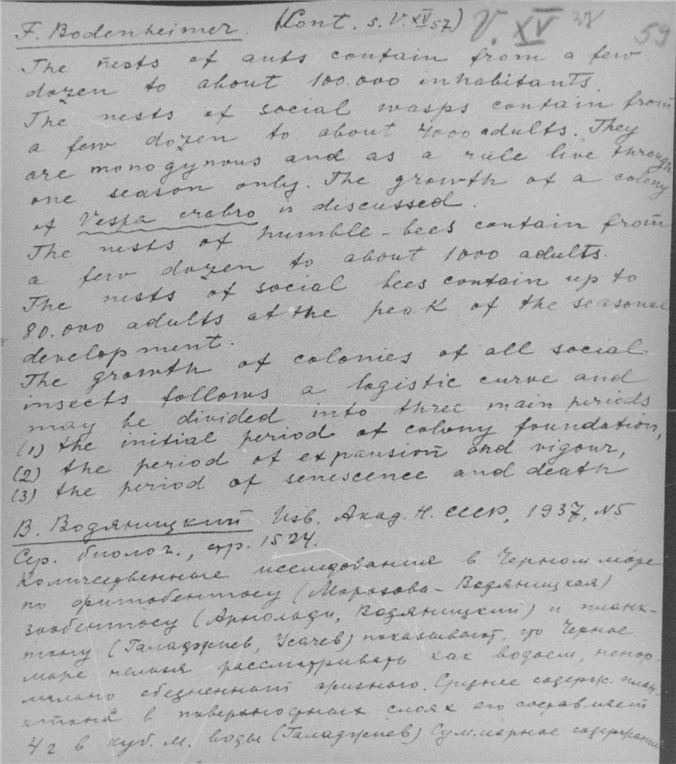 F. Bodenheimer. (Kont. s. V. XV 57) V. XV 38 59
The nests of ants contain from a few
dozen to about 100.000 inhabitants.
The nests of social wasps contain from
a few dozen to about 4000 adults. They
are monogynous and as a rule live through
one season only. The growth of a colony
of Vespa crabro is discussed.
The nests of humble-bees contain from
a few dozen to about 1000 adults.
The nests of social bees contain up to
80.000 adults at the peak of the seasonal
development.
The growth of colonies of all social
insects follows a logistic curve and
may be divided into three main periods
(1) the initial period of colony foundation,
(2) the period of expansion and vigour,
(3) the period of senescence and death
В. Водяницкий Изв. Акад. Н. СССР, 1937, N5
Сер. биолог., стр. 1524.
Количественные исследования в Черном море
по фитобентосу (Морозова-Водяницкая)
зообентосу (Арнольди, Водяницкий) и планк-
тону (Галаджиев, Усачев) показывают, что Черное
море нельзя рассматривать как водоем, ненор-
мально обедненный жизнью. Среднее содерж. планк-
тона в поверхностных слоях его составляет
4 г в куб. м. воды (Галаджиев) Суммарное содержание